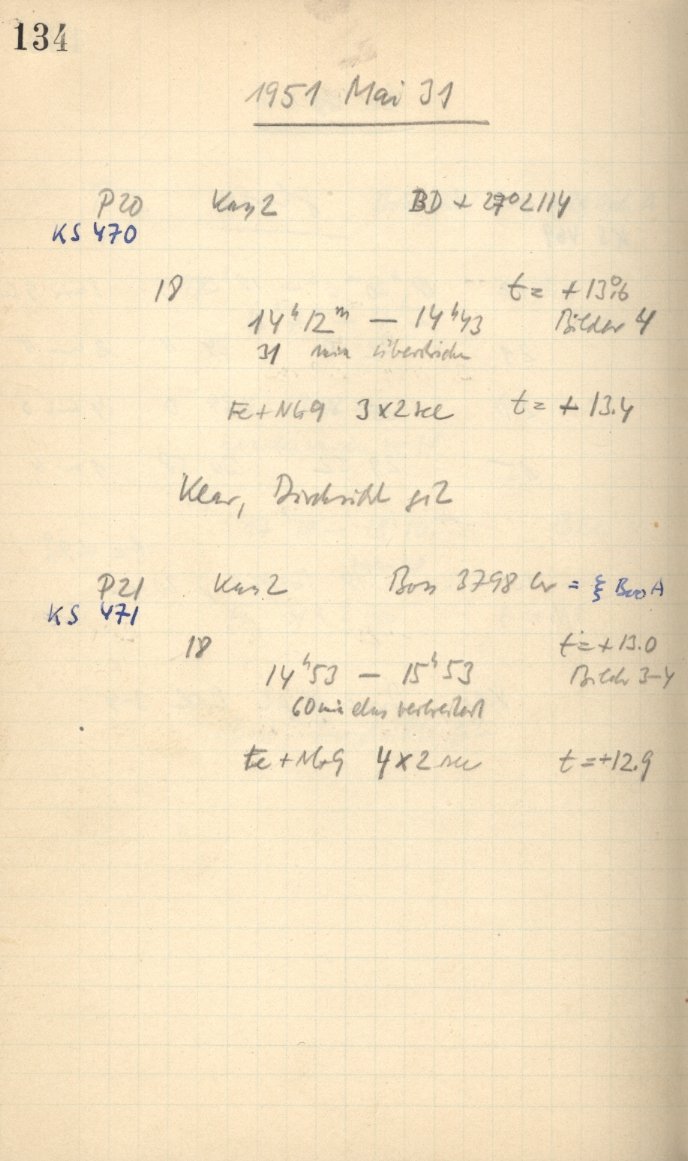 134
1951 Mai 31
P20 Kas 2 BD + 27°2114
KS 470
18 t = +13°.6
14ʰ12ᵐ — 14ʰ43 Bilder 4
31 min überstrichen
Fe+Ng 3×2 sec t = + 13.4
Klar, Durchsicht gi2
P21 Kas 2 Boss 3798 = ξ Boo A
KS 471
18 t = +13.0
14ʰ53 — 15ʰ53 Bilder 3-4
60 min verbreitert
4×2 sec t = +12.9